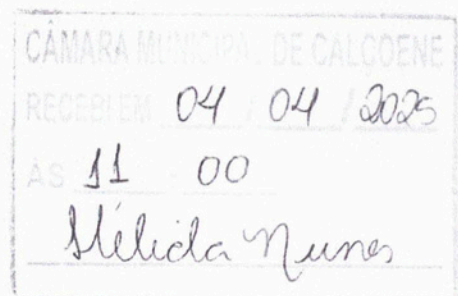 CÂMARA MUNICIPAL DE CALÇOENE
RECEBI EM 04 / 04 / 2025
ÀS 11 00
Hélida Nunes